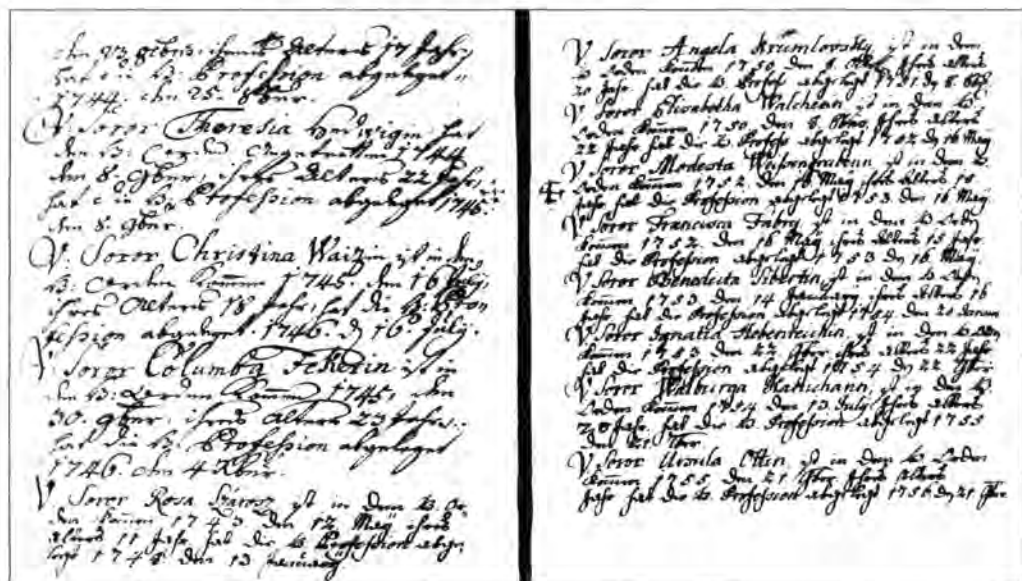 den 23 9bris, ihres Alters 17 Jahr,
hat die H: Profession abgeleget
1744. den 25. 9ber.
V. Soror Theresia Hedwigin hat
den H: Orden 1744
den 8. 9ber, ihres Alters 22 Jahr,
hat die H: Profession abgeleget 1745.
den 8. 9ber.
V. Soror Christina Waizin ist in den
H: Orden Kommen 1745. den 16 July,
ihres Alters 18 Jahr, hat die H: Pro
fession abgeleget 1746. d 16. July.
V. Soror Columba Fekerin ist in
den H: Orden Kommen 1745. den
30. 9ber, ihres Alters 23 Jahr,
hat die H: Profession abgeleget
1746. den 4 Xber.
V. Soror Rosa ist in dem H. Or
den Komen 1743 den 12 May ihres
Alters 11 Jahr, hat die H. Profession abge
legt 1748 den 13
V Soror Angela Krumlovsky ist in dem
H Orden Komen 1750. den 8. ihres Alters
20 Jahr. hat die H. Profess abgelegt 1751 d 8.
V Soror Elisabetha ist in dem H.
Orden Komen 1750. den 8. ihres Alters
22 Jahr hat die H. Profess abgelegt 1752 d 16 May
V Soror Modesta ist in dem H.
Orden Komen 1752. den 16 May ihres Alters 18
Jahr hat die Profession abgelegt 1753. den 16 May.
V Soror Francisca ist in dem H Orden
Komen 1752. den 16 May ihres Alters 15 Jahr
hat die Profession abgelegt 1753 den 16 May.
V Soror Benedicta Sibertin, ist in dem H Orden
Komen 1753. den 14 January, ihres Alters 16
Jahr hat die Profession abgelegt 1754. den 20
V Soror Ignatia ist in dem H Orden
Komen 1753 den 22. 9ber ihres Alters 22 Jahr
hat die Profession abgelegt 1754 d 22 9ber
V Soror Walburga ist in dem H.
Orden Komen 1754 den 13 July, ihres Alters
20 Jahr. hat die H. Profession abgelegt 1755
den 21
V Soror Ursula Ottin, ist in dem H. Orden
Komen 1755. den 21. ihres Alters
Jahr hat die H. Profession abgelegt 1756 d 21.